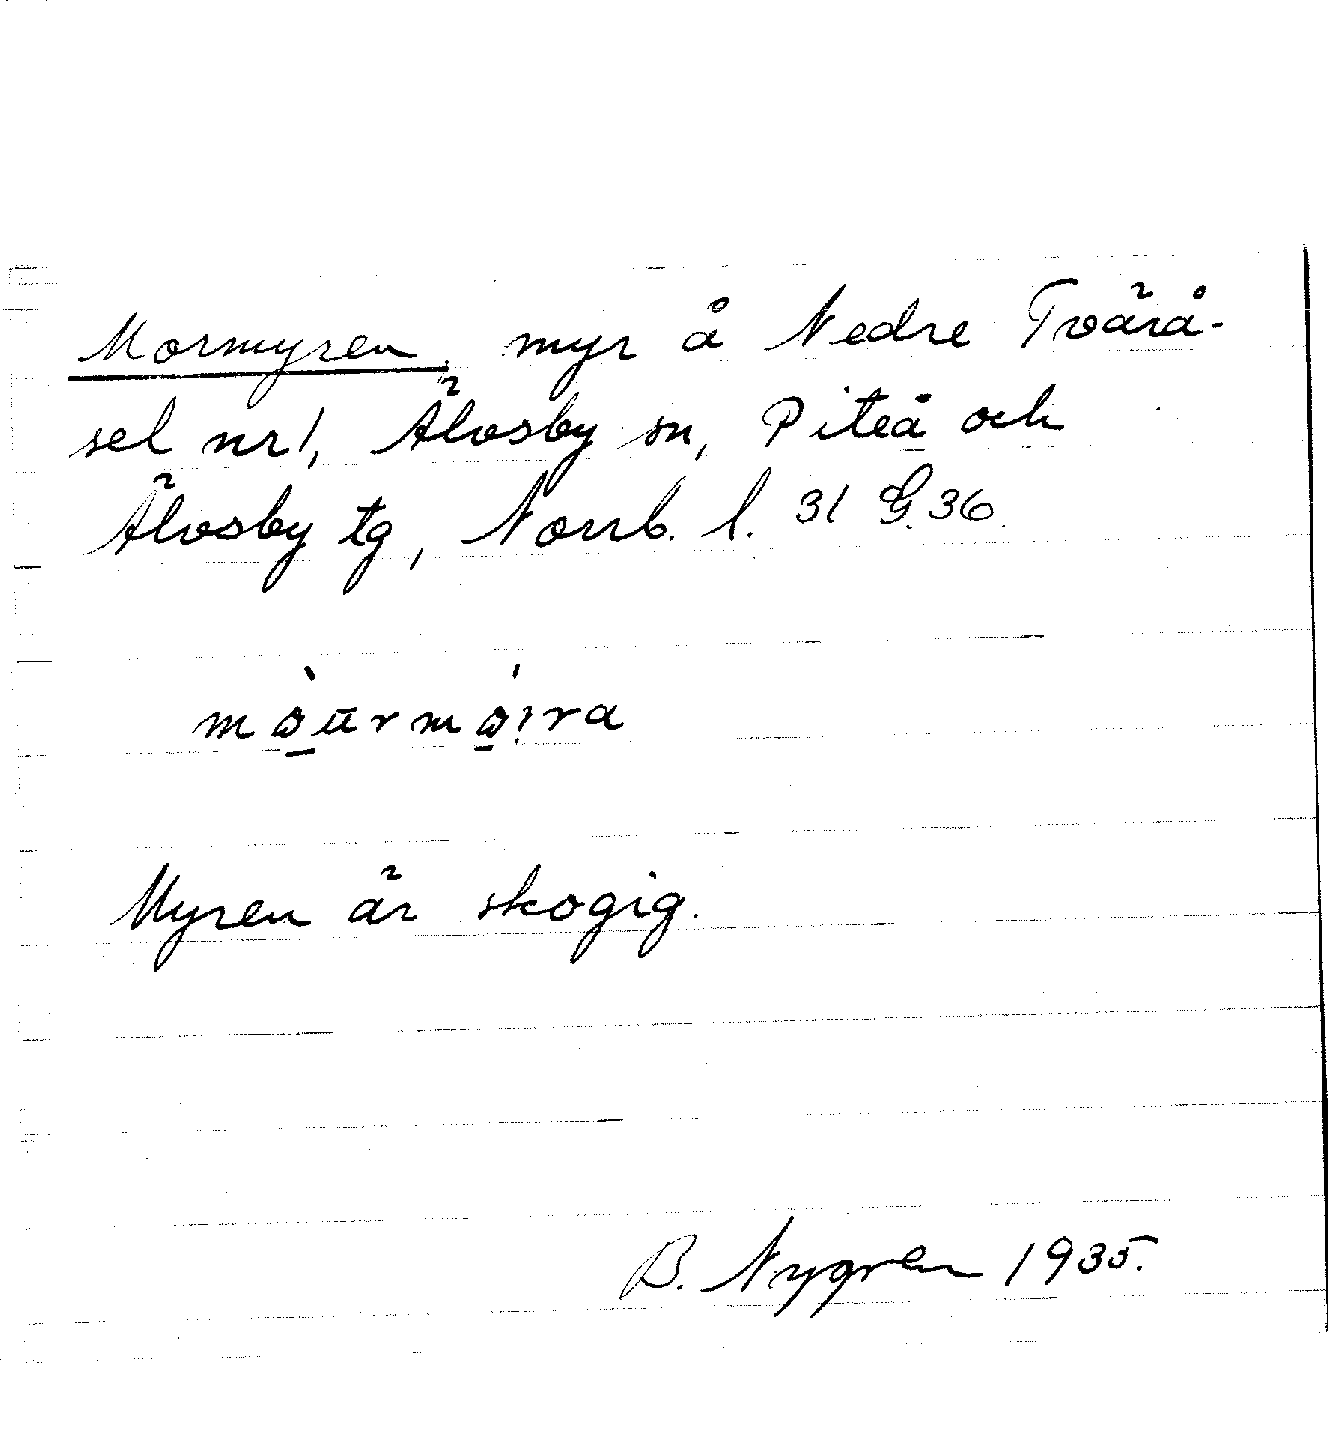 Mormyren, myr å Nedre Tvärå-
sel nr 1, Älvsby sn, Piteå och
Älvsby tg, Norrb. l. 31 G.36.
Myren är skogig.
B. Nygren 1935.